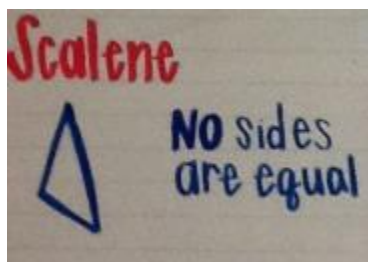 Scalene
NO sides
are equal